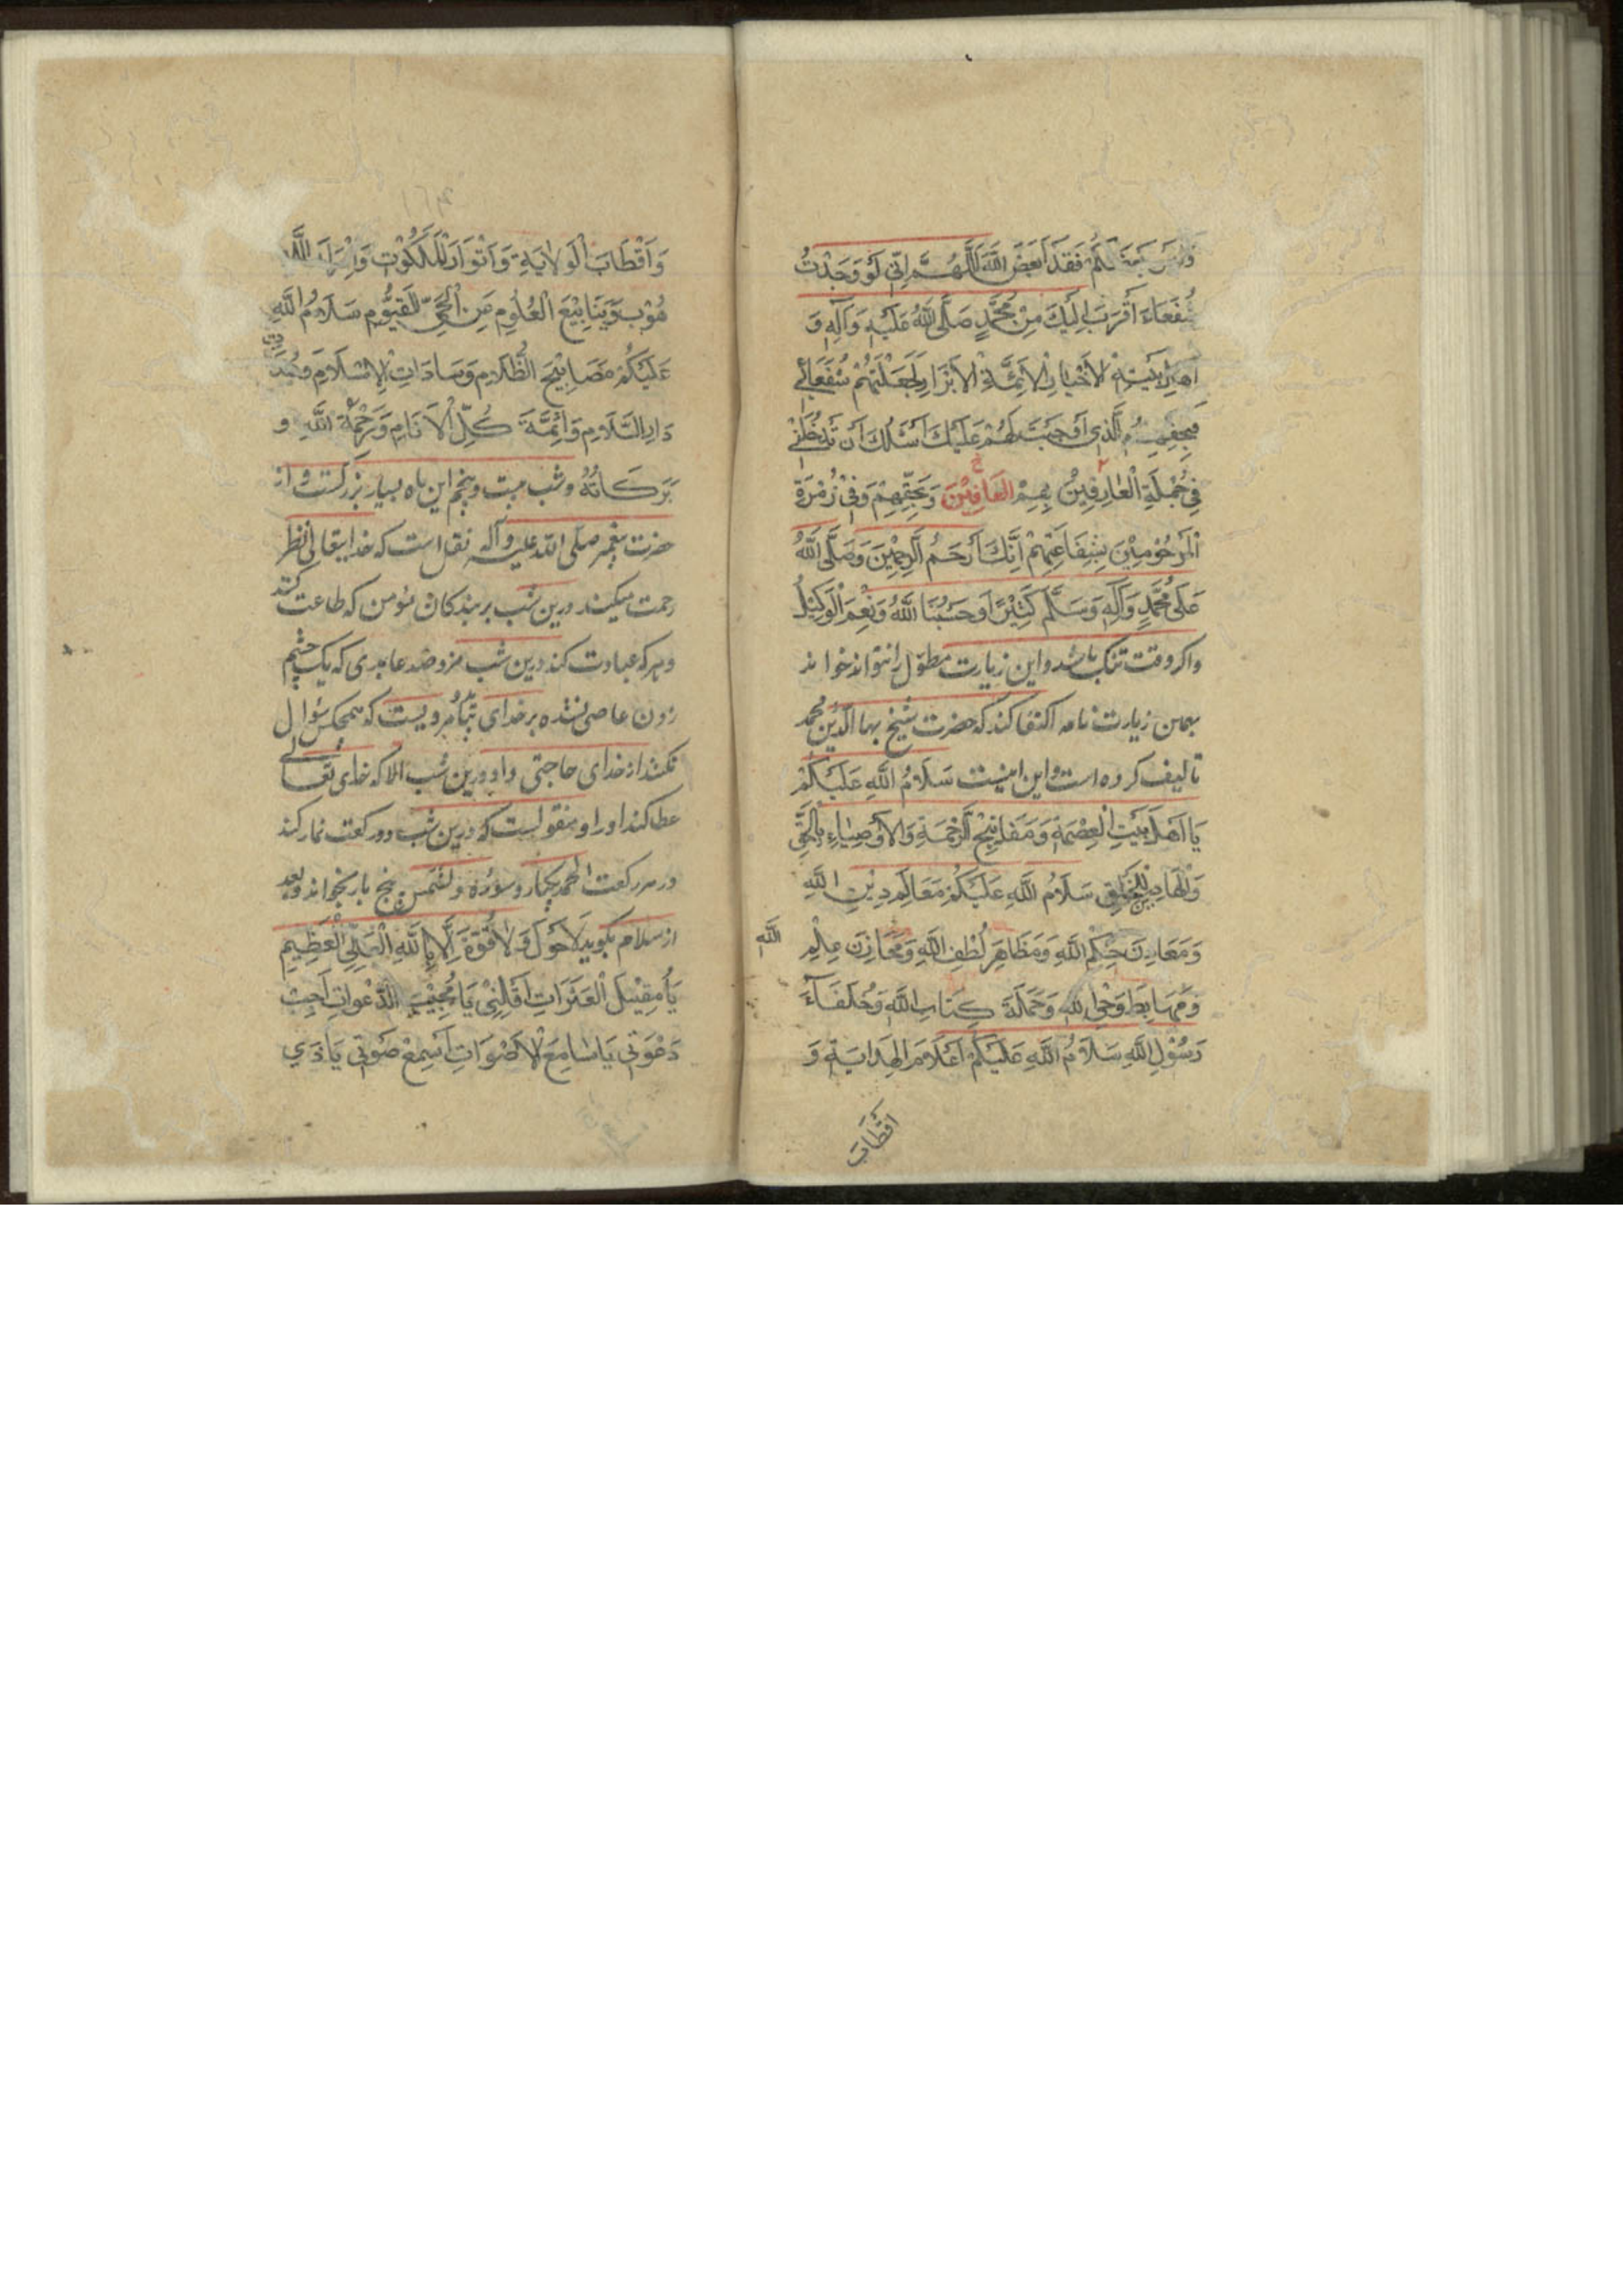 فَقَدْ اَبْغَضَ اللّٰهَ اَللّٰهُمَّ اِنّي لَوْ وَجَدْتُ
شُفَعَاءَ اَقْرَبَ اِلَيْكَ مِنْ مُحَمَّدٍ صَلَّى اللّٰهُ عَلَيْهِ وَآلِهِ وَ
اَهْلِ بَيْتِهِ الْاَخْيَارِ الْاَئِمَّةِ الْاَبْرَارِ لَجَعَلْتَهُمْ شُفَعَائي
فَبِحَقِّهِمُ الَّذي اَوْجَبْتَ لَهُمْ عَلَيْكَ اَسْئَلُكَ اَنْ تُدْخِلَني
فِي جُمْلَةِ الْعَارِفِيْنَ بِهِمْ العَارِفِيْنَ وَبِحَقِّهِمْ وَفِي زُمْرَةِ
الْمَرْحُوْمِيْنَ بِشَفَاعَتِهِمْ اِنَّكَ اَرْحَمُ الرَّاحِمِيْنَ وَصَلَّى اللّٰهُ
عَلَى مُحَمَّدٍ وَآلِهِ وَسَلَّم كَثِيْرًا وَحَسْبُنَا اللّٰهُ وَنِعْمَ الْوَكِيْلُ
واكر وقت تنك باشد واين زيارت مطوّل را نتواند خواند
بهمين زيارت نامه اكتفا كند كه حضرت شيخ بهاء الدين محمد
تاليف كرده است واين اينست سَلَامُ اللّٰهِ عَلَيْكُمْ
يَا اَهْلَ بَيْتِ الْعِصْمَةِ وَمَفَاتِيْحَ الرَّحْمَةِ وَالْاَوْصِيَاءِ بِالْحَقِّ
وَالْهَادِيْنَ لِلْخَلْقِ سَلَامُ اللّٰهِ عَلَيْكُمْ مَعَالِمَ دِيْنِ اللّٰهِ
وَمَعَادِنَ حِكَمِ اللّٰهِ وَمَظَاهِرَ لُطْفِ اللّٰهِ وَمَخَازِنَ عِلْمِ اللّٰهِ
وَمَهَابِطَ وَحْيِ اللّٰهِ وَحَمَلَةَ كِتَابِ اللّٰهِ وَخُلَفَاءَ
رَسُوْلِ اللّٰهِ سَلَامُ اللّٰهِ عَلَيْكُمْ اَعْلَامَ الهِدَايَةِ وَ
اَقْطَابَ
وَاَقْطَابَ الْوَلَايَةِ وَاَنْوَارَ الْمَلَكُوْتِ وَاَسْرَارَ اللَّا
هُوْتِ وَيَنَابِيْعَ الْعُلُوْمِ مِنَ الْحَيِّ الْقَيُّوْمِ سَلَامُ اللّٰهِ
عَلَيْكُمْ مَصَابِيْحَ الظَّلَامِ وَسَادَاتِ الْاِسْلَامِ
دَارِ السَّلَامِ وَاَئِمَّةَ كُلِّ الْاَنَامِ وَرَحْمَةُ اللّٰهِ و
بَرَكَاتُهُ وشب بيست وپنجم اين ماه بسيار بزركست واز
حضرت پيغمبر صلّى الله عليه وآله نقل است كه خدايتعالى نظر
رحمت ميكند درين شب بر بندكان مؤمن كه طاعت كنند
وهركه عبادت كند درين شب مزد صد عابدى كه يك چشم
زدن عاصى نشده بر خداى بنامه اويست كه هيچكس سؤال
نكند از خداى حاجتى در درين شب الّا كه خداى تعالى
عطا كند اورا ومنقولست كه درين شب دو ركعت نماز كند
در هر ركعت الحمد يكبار وسوره والشمس پنج بار بخواند وبعد
از سلام بكويد لَاحَوْلَ وَلَاقُوَّةَ اِلَّا بِاللّٰهِ الْعَلِيِّ الْعَظِيمِ
يَا مُقِيْلَ الْعَثَرَاتِ اَقِلْنِيْ يَا مُجِيْبَ الدَّعَوَاتِ اَجِبْ
دَعْوَتي يَا سَامِعَ الْاَصْوَاتِ اسْمَعْ صَوْتي يَا